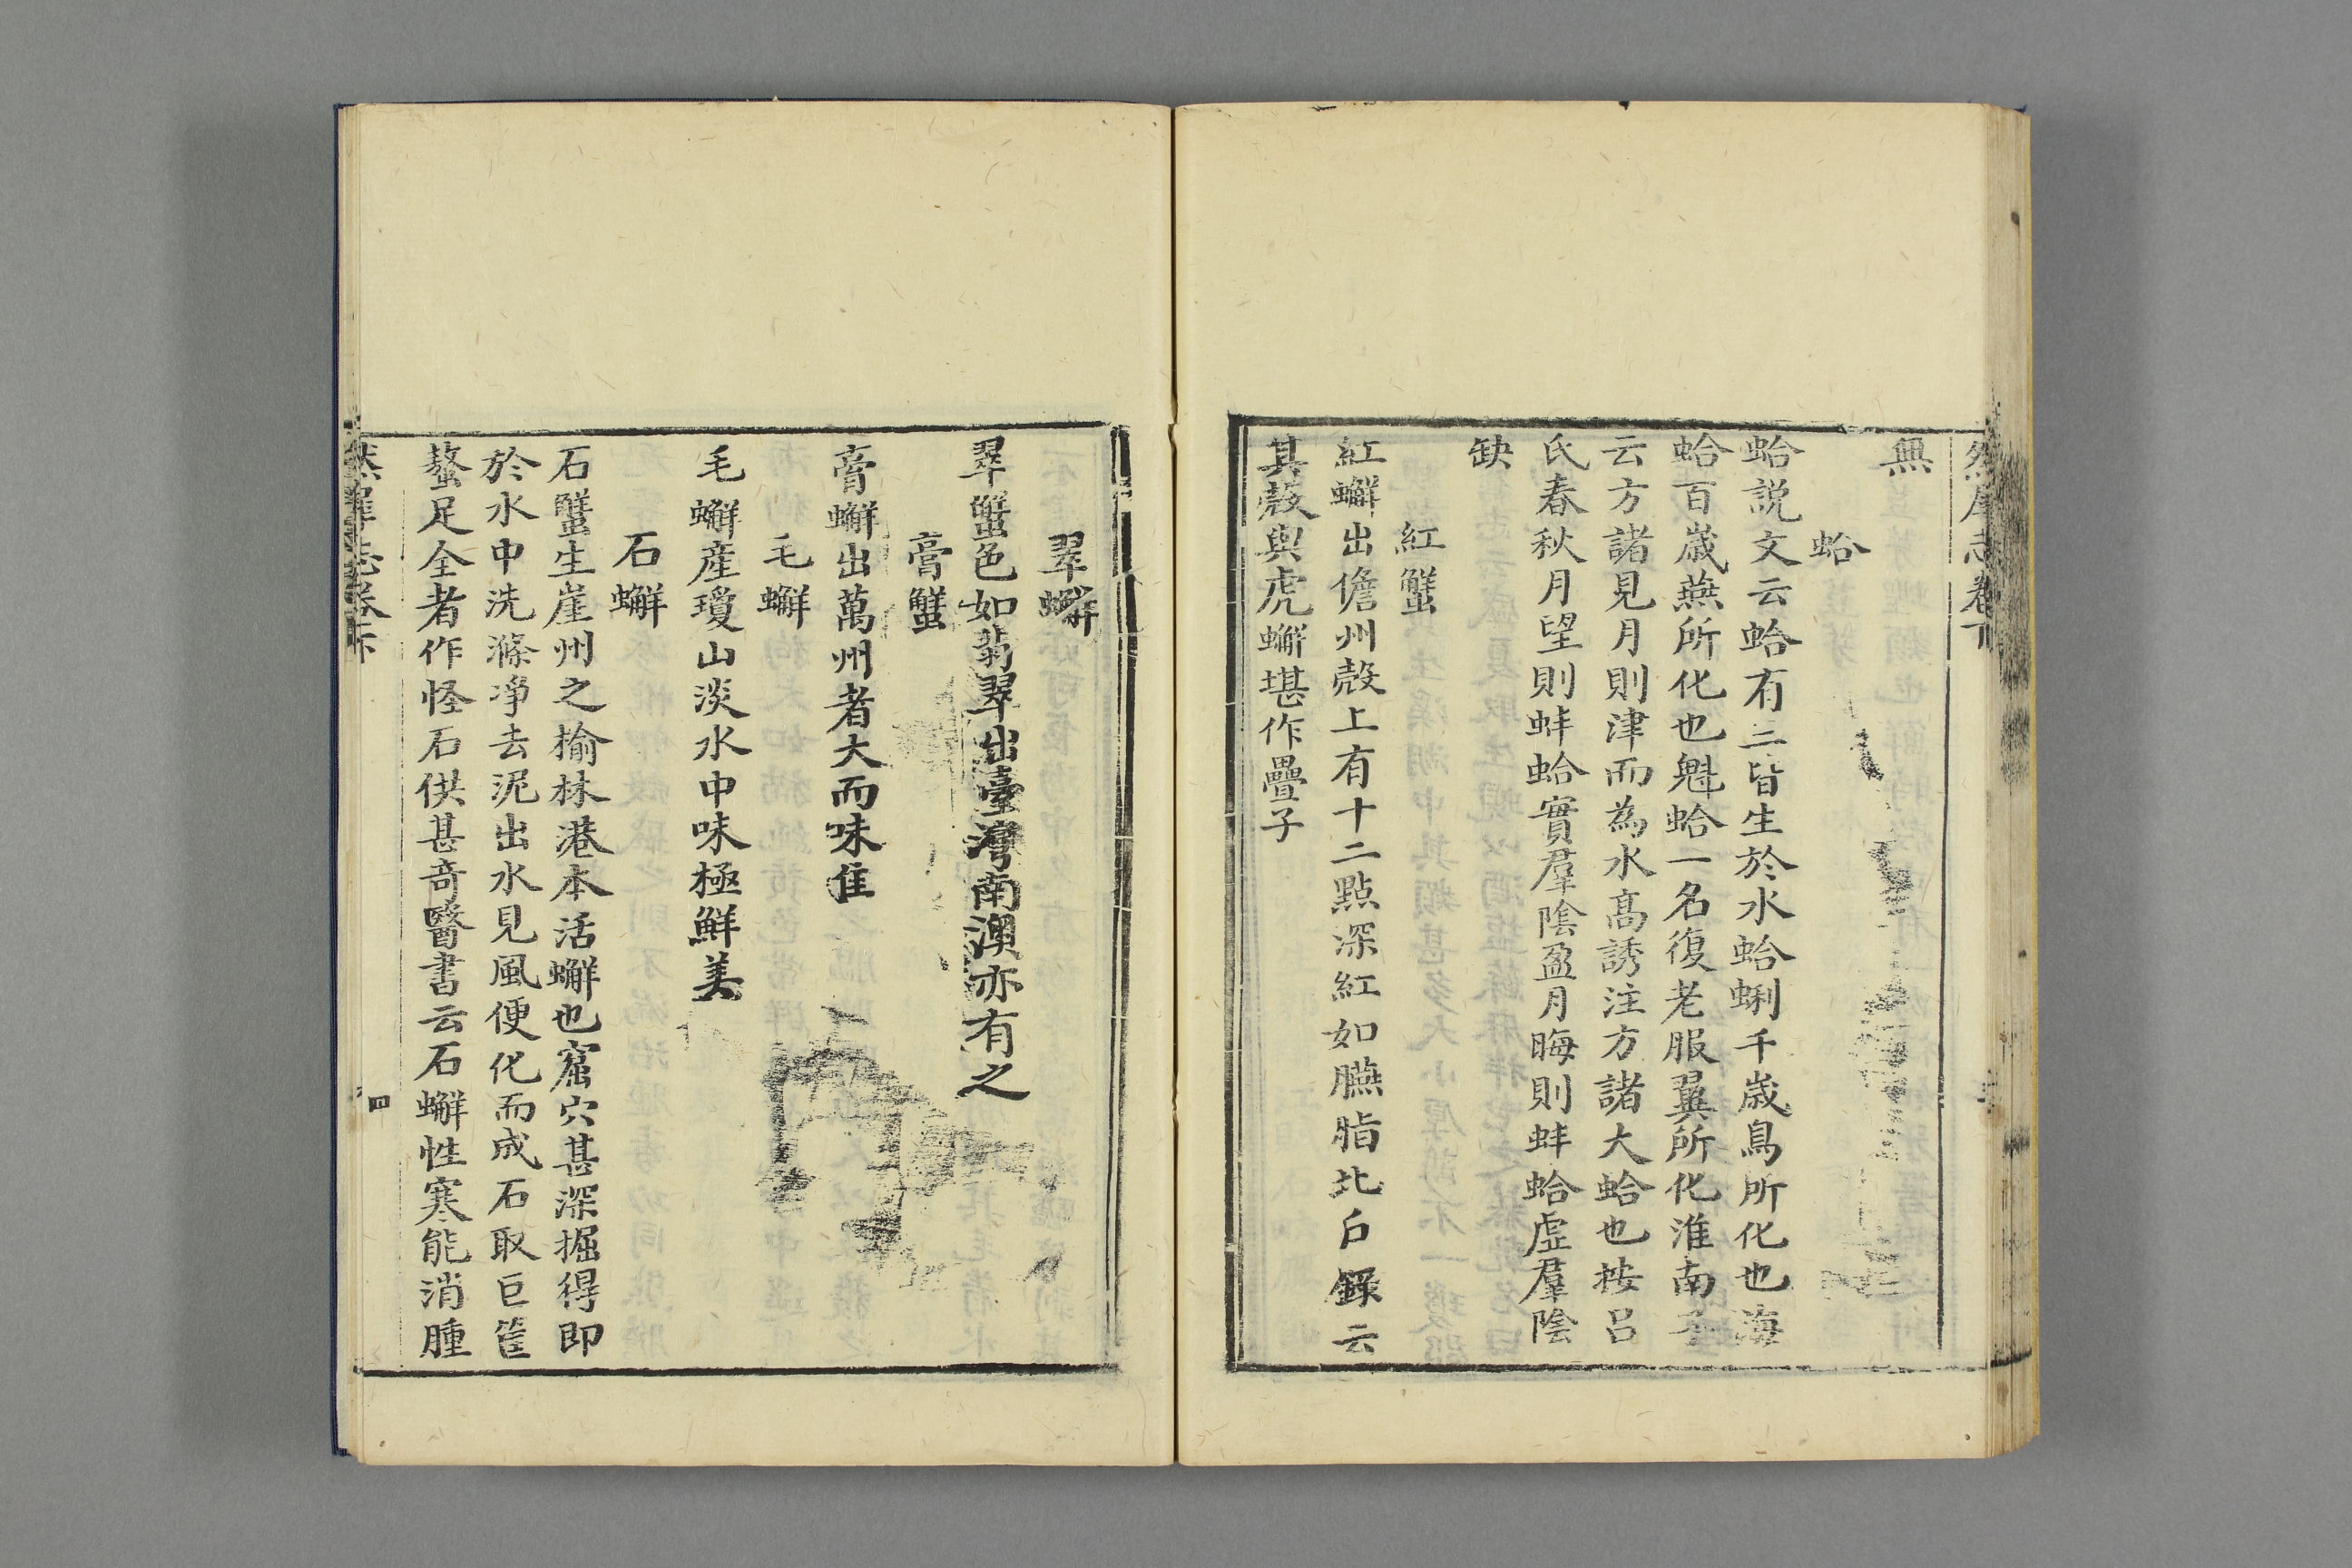 然犀志卷下
無
蛤
蛤説文云蛤有三皆生於水蛤蜊千歳鳥所化也海
蛤百歳燕所化也魁蛤一名復老服翼所化淮南子
云方諸見月則津而為水高誘注方諸大蛤也按呂
氏春秋月望則蚌蛤實羣陰盈月晦則蚌蛤虛羣陰
缺
紅蟹
紅蠏出儋州殼上有十二點深紅如臙脂北户錄云
其殼與虎蠏堪作疊子
翠蠏
翠蟹色如翡翠出臺灣南澳亦有之
膏蟹
膏蠏出萬州者大而味佳
毛蠏
毛蠏産瓊山淡水中味極鮮美
石蠏
石蟹生崖州之揄林港本活蠏也窟穴甚深掘得即
於水中洗滌淨去泥出水見風便化而成石取巨筐
螯足全者作怪石供甚奇醫書云石蠏性寒能消腫
然犀志卷下
四